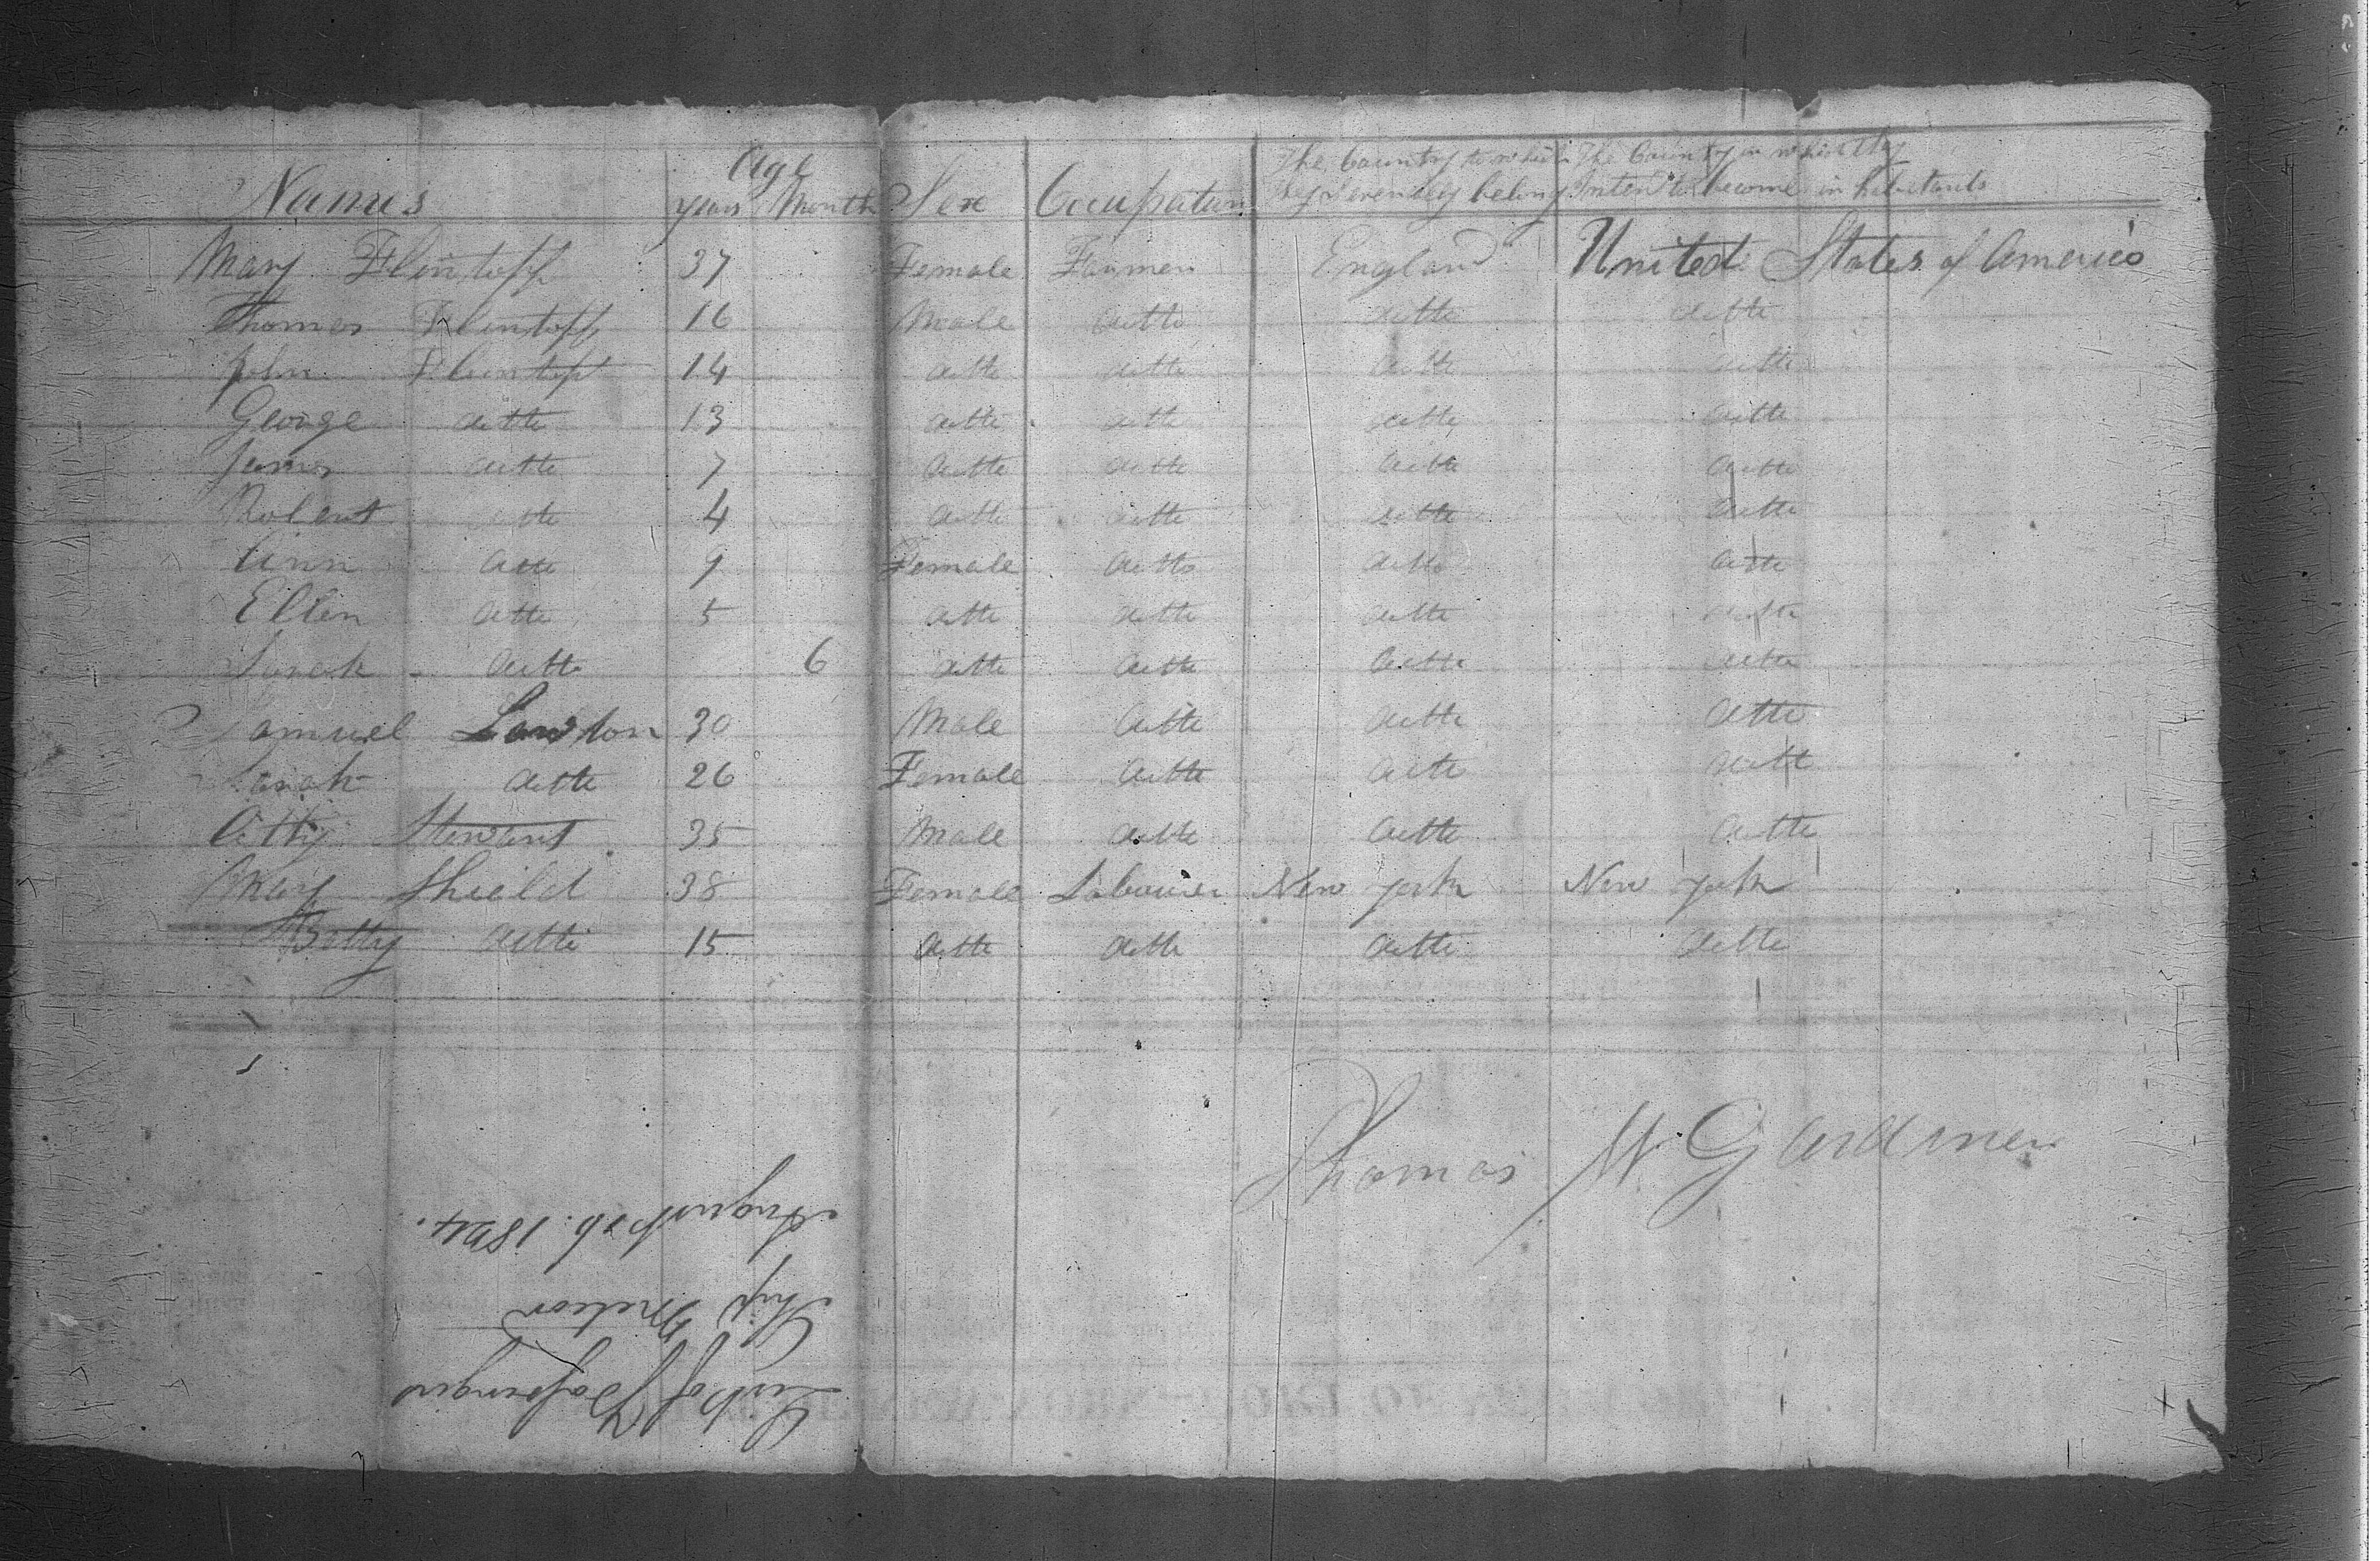 Names Age years Month Sex Occupation The Country to which they severally belong The Country in which they Intend to become inhabitants
Mary Flintoff 37 Female Farmer England United States of America
Thomas Flintoff 16 Male ditto ditto ditto
John Flintoff 14 ditto ditto ditto ditto
George ditto 13 ditto ditto ditto ditto
James ditto 7 ditto ditto ditto ditto
Robert ditto 4 ditto ditto ditto ditto
Ann ditto 9 Female ditto ditto ditto
Ellen ditto 5 ditto ditto ditto ditto
Sarah ditto 6 ditto ditto ditto ditto
Samuel Lawton 30 Male ditto ditto ditto
Sarah ditto 26 Female ditto ditto ditto
Stewart 35 Male ditto ditto ditto
Mary Shield 38 Female Labourer New york New york
Betty ditto 15 ditto ditto ditto ditto
Thomas W Gardiner
List of Passengers
Ship Meteor
August 26. 1824.